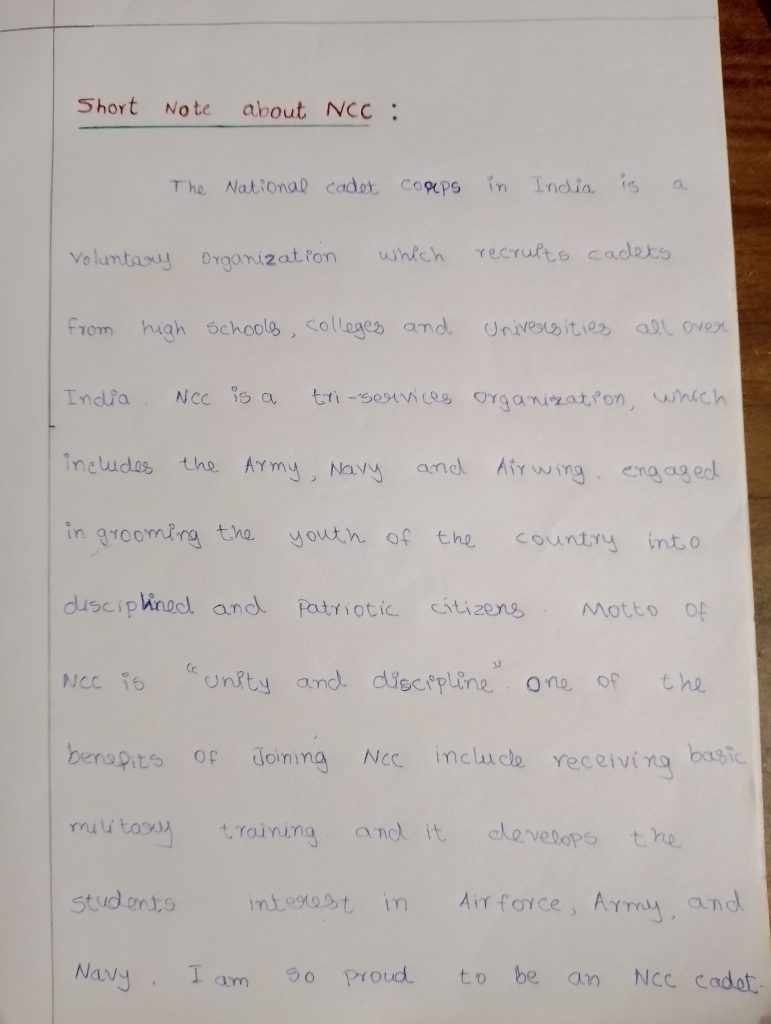 Short Note about NCC :
The National cadet corps in India is a
voluntary organization which recruits cadets
from high schools, colleges and Universities all over
India. NCC is a tri-services organization, which
includes the Army, Navy and Air wing. engaged
in grooming the youth of the country into
disciplined and Patriotic citizens. Motto of
NCC is "unity and discipline". one of the
benefits of Joining NCC include receiving basic
military training. and it develops the
students interest in Air force, Army, and
Navy. I am so proud to be an NCC cadet.